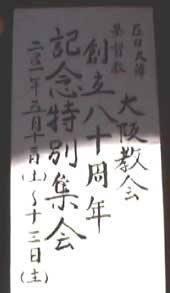 在日大韓
基督教
大阪教会
創立八十周年
記念特別集会
二〇〇一年五月十二日(土)~十三日(主)